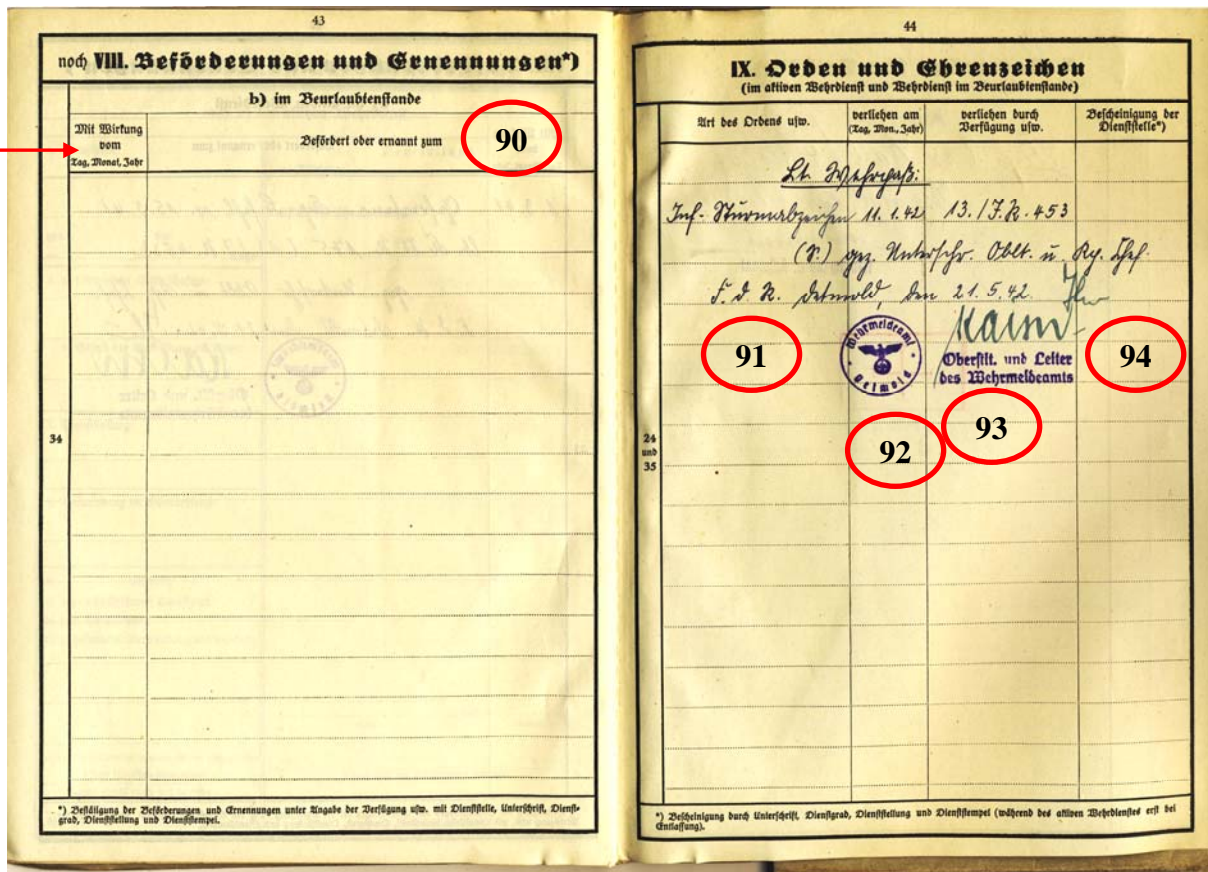 43
noch VIII. Beförderungen und Ernennungen*)
b) im Beurlaubtenstande
Mit Wirkung
vom
Tag, Monat, Jahr
Befördert oder ernannt zum
90
34
*) Bestätigung der Beförderungen und Ernennungen unter Angabe der Verfügung usw. mit Dienststelle, Unterschrift, Dienst-
grad, Dienststellung und Dienststempel.
44
IX. Orden und Ehrenzeichen
(im aktiven Wehrdienst und Wehrdienst im Beurlaubtenstande)
Art des Ordens usw.
verliehen am
(Tag, Mon., Jahr)
verliehen durch
Verfügung usw.
Bescheinigung der
Dienststelle*)
Lt. Wehrpaß:
Inf.-Sturmabzeichen 11.1.42 13./J.R. 453
(S.) gez. Unterschr. Oblt. u. Chef
F. d. R. Detmold, den 21.5.42
Wehrmeldeamt
Detmold
Oberstlt. und Leiter
des Wehrmeldeamts
91
92
93
94
24
und
35
*) Bescheinigung durch Unterschrift, Dienstgrad, Dienststellung und Dienststempel (während des aktiven Wehrdienstes erst bei
Entlassung).